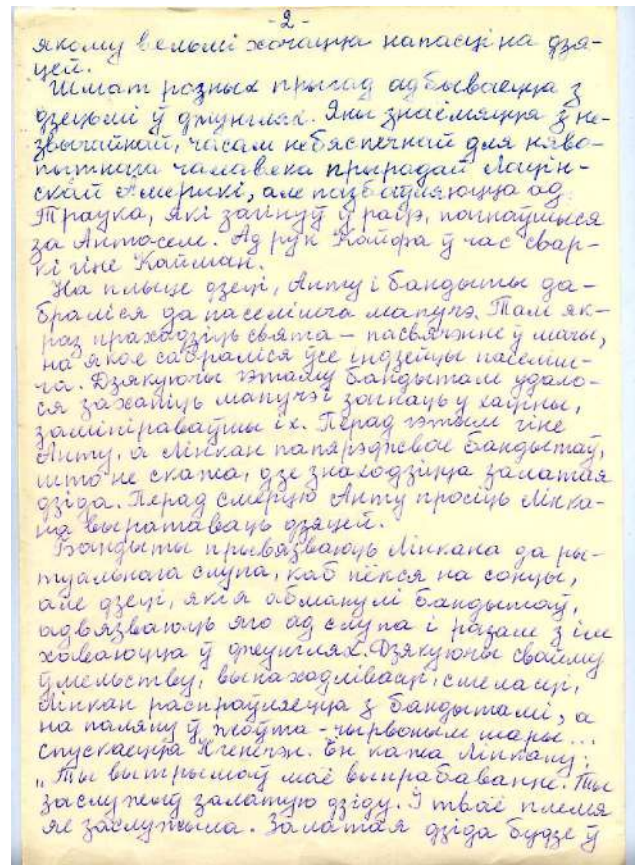 - 2 -
якому вельмі хочацца напасці на дзя-
цей.
Шмат розных прыгод адбываецца з
дзецьмі ў джунглях. Яны знаёмяцца з не-
звычайнай, часам небяспечнай для няво-
пытнага чалавека прыродай Лацін-
скай Амерыкі, але пазбаўляюцца ад
Траука, які загінуў у рацэ, пагнаўшыся
за Антосем. Ад рук Кайфа ў час свар-
кі гіне Кайман.
На плыце дзеці, Анту і бандыты да-
браліся да паселішча мапучэ. Там як-
раз праходзіць свята — пасвячэнне ў мачы,
на якое сабраліся ўсе індзейцы паселіш-
ча. Дзякуючы гэтаму бандытам удало-
ся захапіць мапучэ і загнаць у хаціны,
замініраваўшы іх. Перад гэтым гіне
Анту, а Лінкан папярэджвае бандытаў,
што не скажа, дзе знаходзіцца залатая
дзіда. Перад смерцю Анту просіць Лінка-
на выратаваць дзяцей.
Бандыты прывязваюць Лінкана да ры-
туальнага слупа, каб пёкся на сонцы,
але дзеці, якія абманулі бандытаў,
адвязваюць яго ад слупа і разам з ім
хаваюцца ў джунглях. Дзякуючы свайму
ўмельству, вынаходлівасці, смеласці,
Лінкан распраўляецца з бандытамі, а
на паляну ў жоўта-чырвоным шары...
спускаецца Нгенечэн. Ён кажа Лінкану:
„Ты вытрымаў маё выпрабаванне. Ты
заслужыў залатую дзіду. І тваё племя
яе заслужыла. Залатая дзіда будзе ў